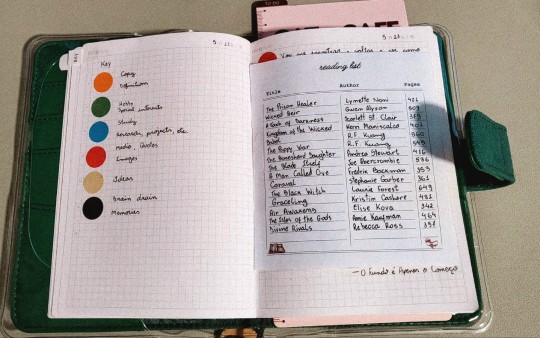 TO DO
CAFE
Key
Copy
Definitions
Special interests
Study
Research, projects, etc
media, Quotes
Images
Ideas
Brain drain
Memories
You are
reading list
Title Author Pages
The Prison Healer Lynette Noni
Wicked Gwen
of Darkness Scarlett St. Clair
Kingdom of the Wicked Kerri Maniscalco
Babel R.F. Kuang 560
The Poppy War R.F. Kuang 545
The Boneshard Daughter Andrea Stewart 416
The Blade Itself Joe Abercrombie 536
A Man Called Ove Fredrik Backman 353
Caraval Stephanie Garber 361
The Black Witch Laurie Forest 649
Graceling Kristin Cashore 481
Air Awakens Elise Kova 342
The Isles of the Gods Amie Kaufman 464
Divine Rivals Rebecca Ross 357
— O Fundo é Apenas o Começo